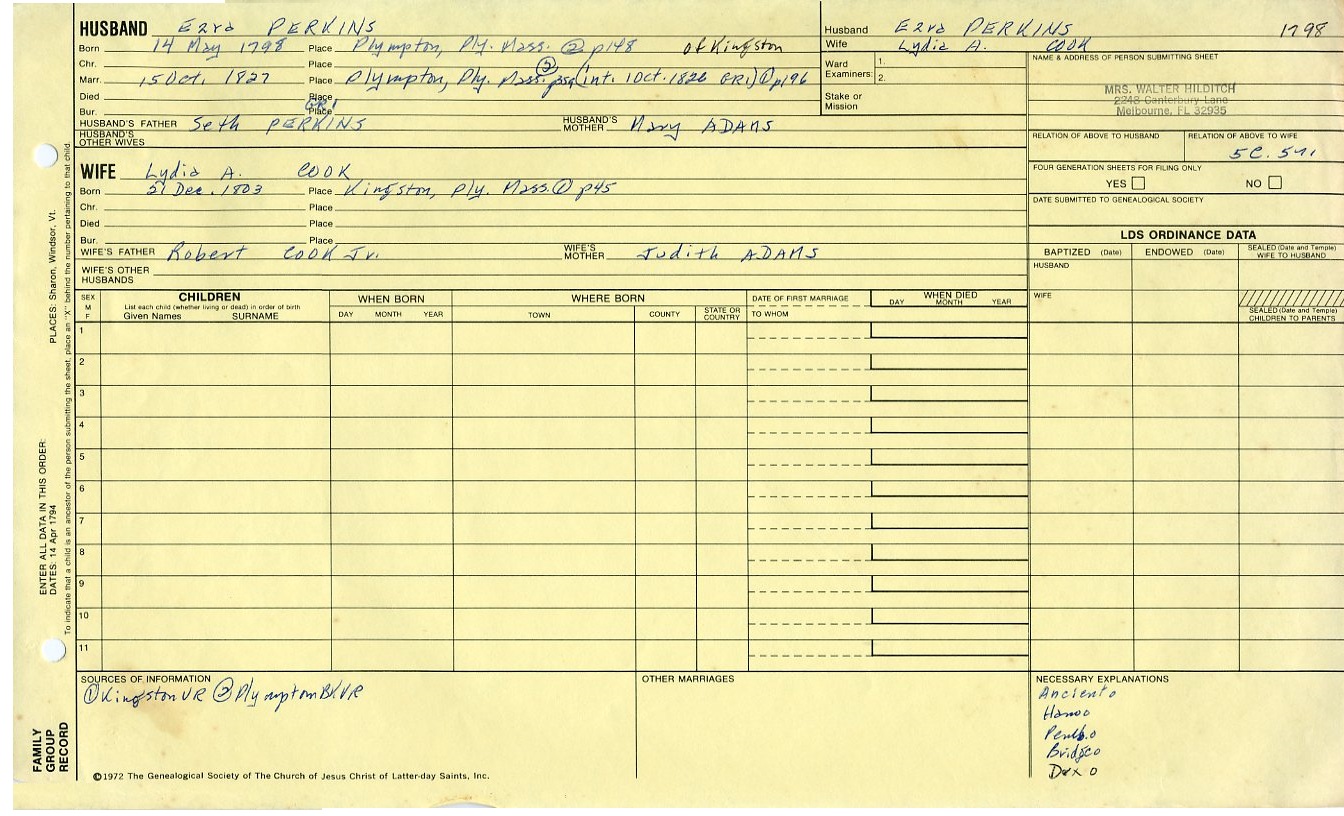 HUSBAND Ezra PERKINS
Born 14 May 1798 Place Plympton, Ply. Mass. ② p148 of Kingston
Chr. Place
Marr. 15 Oct. 1827 Place Plympton, Ply. Mass. ② (int. 1 Oct. 1826 GRI) ① p196
Died Place
GRI
Bur. Place
HUSBAND'S FATHER Seth PERKINS HUSBAND'S MOTHER Mary ADAMS
HUSBAND'S OTHER WIVES
WIFE Lydia A. COOK
Born 21 Dec. 1803 Place Kingston, Ply. Mass. ① p45
Chr. Place
Died Place
Bur. Place
WIFE'S FATHER Robert COOK Jr. WIFE'S MOTHER Judith ADAMS
WIFE'S OTHER HUSBANDS
Husband Ezra PERKINS 1798
Wife Lydia A. COOK
Ward Examiners: 1.
2.
Stake or Mission
NAME & ADDRESS OF PERSON SUBMITTING SHEET
MRS. WALTER HILDITCH
2248 Canterbury Lane
Melbourne, FL 32935
RELATION OF ABOVE TO HUSBAND RELATION OF ABOVE TO WIFE
FOUR GENERATION SHEETS FOR FILING ONLY
YES NO
DATE SUBMITTED TO GENEALOGICAL SOCIETY
LDS ORDINANCE DATA
BAPTIZED (Date) ENDOWED (Date) SEALED (Date and Temple) WIFE TO HUSBAND
HUSBAND
WIFE
SEALED (Date and Temple) CHILDREN TO PARENTS
SEX M F CHILDREN WHEN BORN WHERE BORN DATE OF FIRST MARRIAGE WHEN DIED
List each child (whether living or dead) in order of birth
Given Names SURNAME DAY MONTH YEAR TOWN COUNTY STATE OR COUNTRY TO WHOM DAY MONTH YEAR
1
2
3
4
5
6
7
8
9
10
11
SOURCES OF INFORMATION
① Kingston VR ② Plympton VR
OTHER MARRIAGES
NECESSARY EXPLANATIONS
Anciento
Hano o
Bridgeo
©1972 The Genealogical Society of The Church of Jesus Christ of Latter-day Saints, Inc.
FAMILY GROUP RECORD
ENTER ALL DATA IN THIS ORDER:
DATES: 14 Apr 1794
PLACES: Sharon, Windsor, Vt.
To indicate that a child is an ancestor of the person submitting the sheet, place an "X" behind the number pertaining to that child.